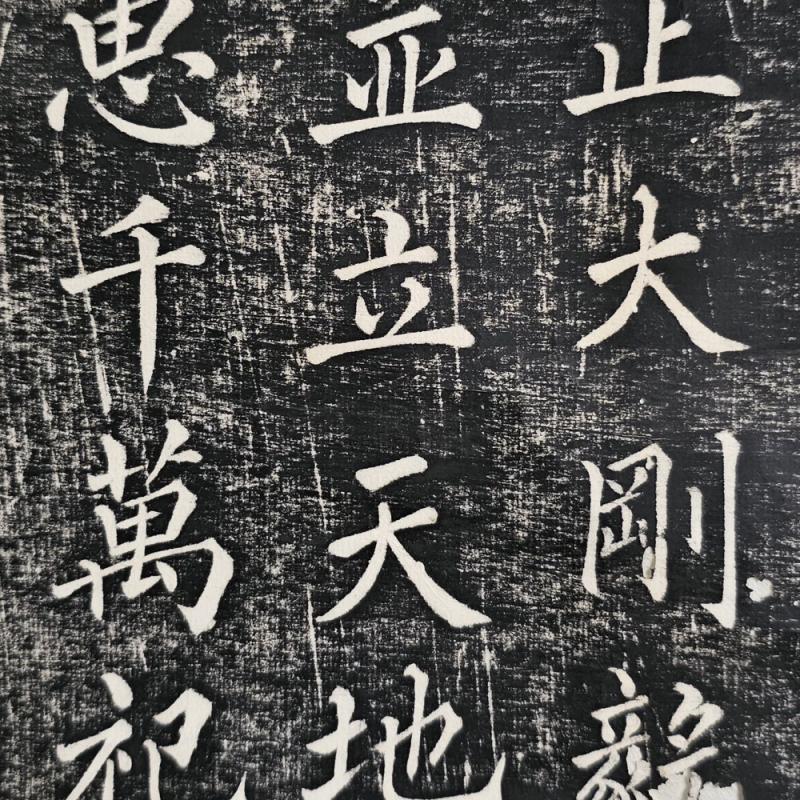 正大剛毅
亚立天地
恵千萬祀